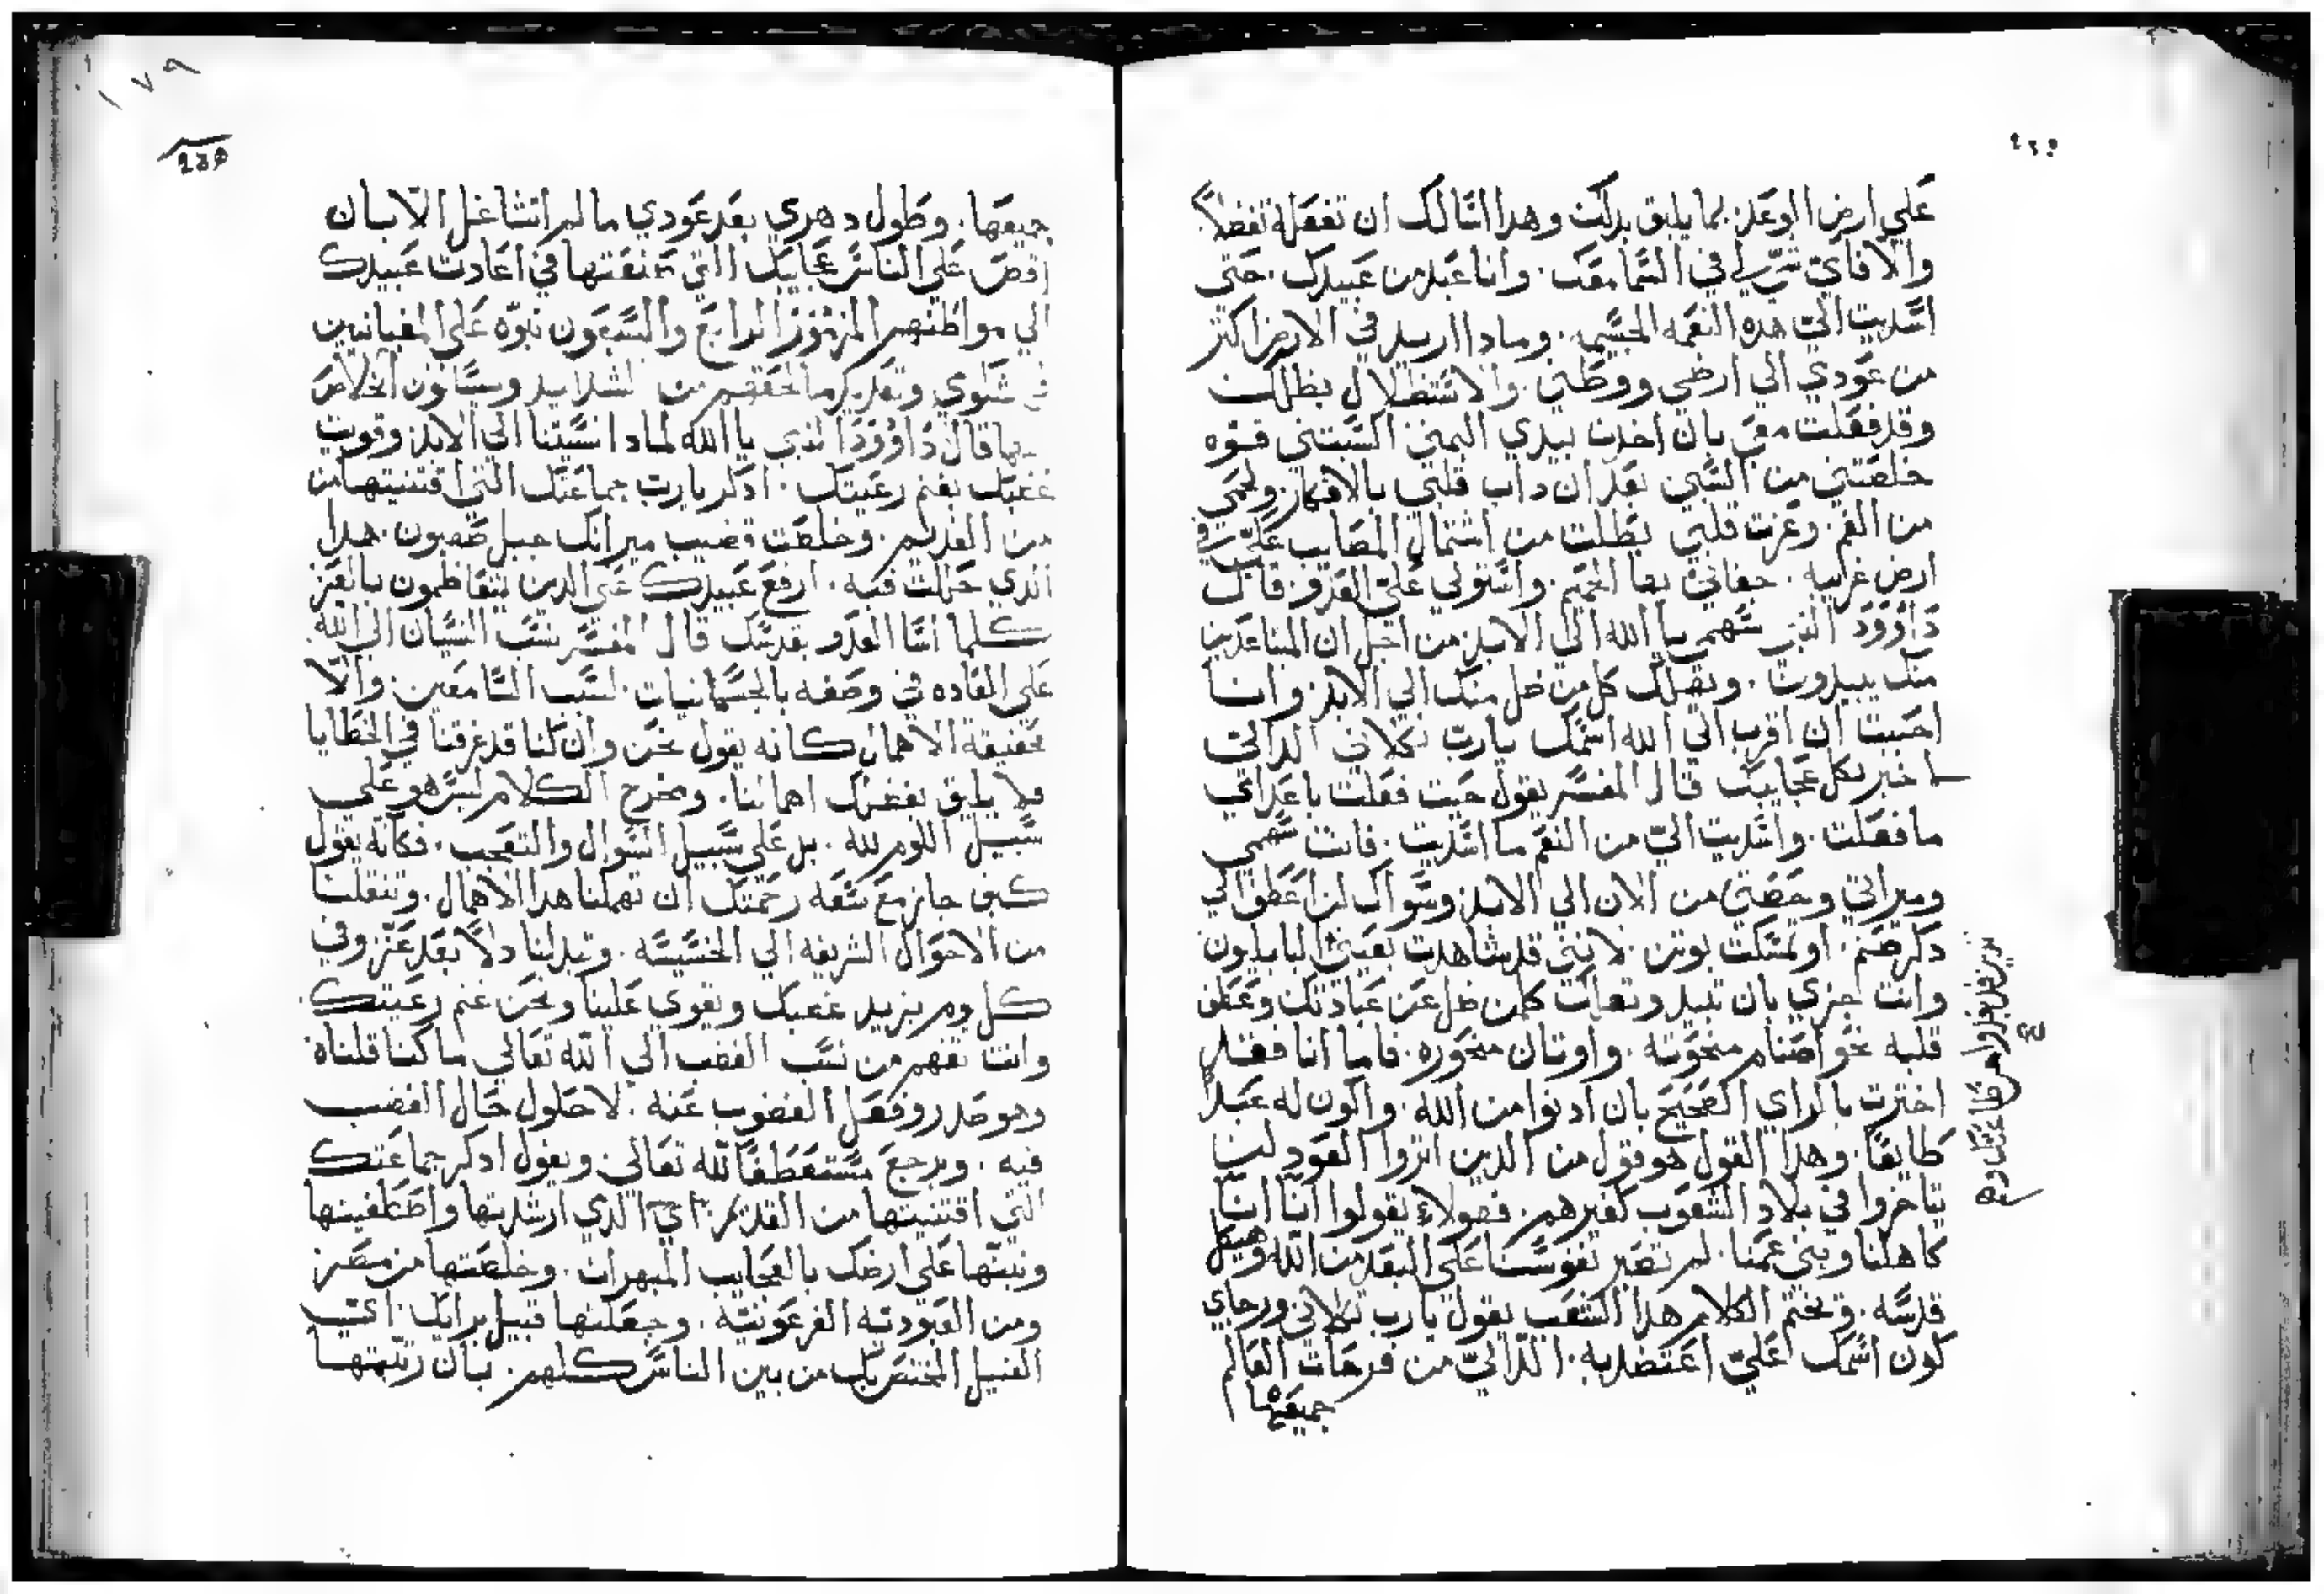 علي ارض الوعد بما يليق بدلك وهدا اسالك ان تفعله تفضلاً
والا فاي شي لي في السما معك. وانا عبد من عبيدك. حتى
اسديت الي هده النعمه الجسيمه. وماداا اريد في الارض اكتر
من عودي الي ارضي ووطني. والاستظلال بظلك
وقد فعلت معي بان اخدت بيدي اليمني اكسبتني قوه
خلصتني من السبي بعد ان داب قلبي بالافكار ولحمي
من الغم. وعزيت قلبي بطلت من اشتمال المصايب علي في
ارض غريبه. واستولي علي العدو. قال
داوود النبي سهمي يا الله الي الابد من اجل ان المباعدين
منك يبيدون. ويهلك كل من ضل منك الي الابد. وانا
احببت ان اقرب الي الله اسمك يارب تكلاني الداني
اخبر بكل عجايبك قال المفسر يقول حيت فعلت باعداي
ما فعلت. واسديت الي من النعم ما اسديت. فانت سهمي
وميراتي وحصتي من الان الي الابد وسواك لن اعطف الي
دكر صنم. او تمسكت بوتن. لانني قد شاهدت بعيني البابليون
وانت احري بان تبيد وتهلك كل من ضل عن عبادتك وعطف
قلبه نحو اصنام منحوته. واوتان منجوره. فاما انا فقد
اخترت بالراي الصحيح بان ادنوا من الله. واكون له عبداً
طايعاً. وهدا القول هو قول من الدين اتروا العود لبلا
يتاخروا في بلاد الشعوب كغيرهم. فهولاء يقولوا اننا
كاهلنا وبني عمنا. لم تصبر نفوسنا علي البعد من الله وهيكل
قدسه. ويختم الكلام هدا الشعب يقول يارب تكلاني ورجاي
كون اسمك علي اعتضد به. الداني من فرحات العالم
جميعها
جميعها. وطول دهري بعد عودي ما لم اتشاغل الا بان
اقص علي الناس عجايبك التي صنعتها في اعادت عبيدك
الي مواطنهم المزمور الرابع والسبعون نبوه علي المقبانيين
في شلوي وتعديد ما لحقهم من الشدايد ويسالون الخلاص
بها قال داوود النبي يا الله لمادا نسيتنا الي الابد وقويت
غضبك بغنم رعيتك. ادكر يارب جماعتك التي اقتنيتها من
من القديم. وخلصت قضيب ميراتك جبل صهيون هدا
الدي حللت فيه. ارفع عبيدك عن الدين يتعاظمون بالعز
كلما اسا العدو بقدسك قال المفسر نسب النسيان الي الله
علي العاده في وصفه بالجسمانيات. لسبب السامعين. والا
حقيقة الاهمال كانه يقول نحن وان كنا قد غرقنا في الخطايا
فلا يليق بفضلك اهمالنا. ومخرج الكلام ليس هو علي
سبيل اللوم لله. بل علي سبيل السوال والتعجب. فكانه يقول
كيف جاز مع سعه رحمتك ان تهملنا هدا الاهمال. وتنقلنا
من الاحوال الشريفه الي الخسيسه. وتبدلنا دلاً بعد عز. وفي
كل يوم يزيد غضبك ويقوي علينا ونحن غنم رعيتك.
وانت تفهم من نسب الغضب الي الله تعالي ما كنا قلناه
وهو صدور فعل الغضوب عنه. لا حلول حال الغضب
فيه. ويرجع مستعطفاً لله تعالي ويقول ادكر جماعتك
التي اقتنيتها من القديم. اي الدي ارشدتها واصطفيتها
وتبتها علي ارضك بالعجايب المبهرات. وخلصتها من مصر
ومن العبوديه الفرعونيه. وجعلتها قبيل براتك. اي
القبيل المختص بك من بين الناس كلهم. بان رتبتها
239